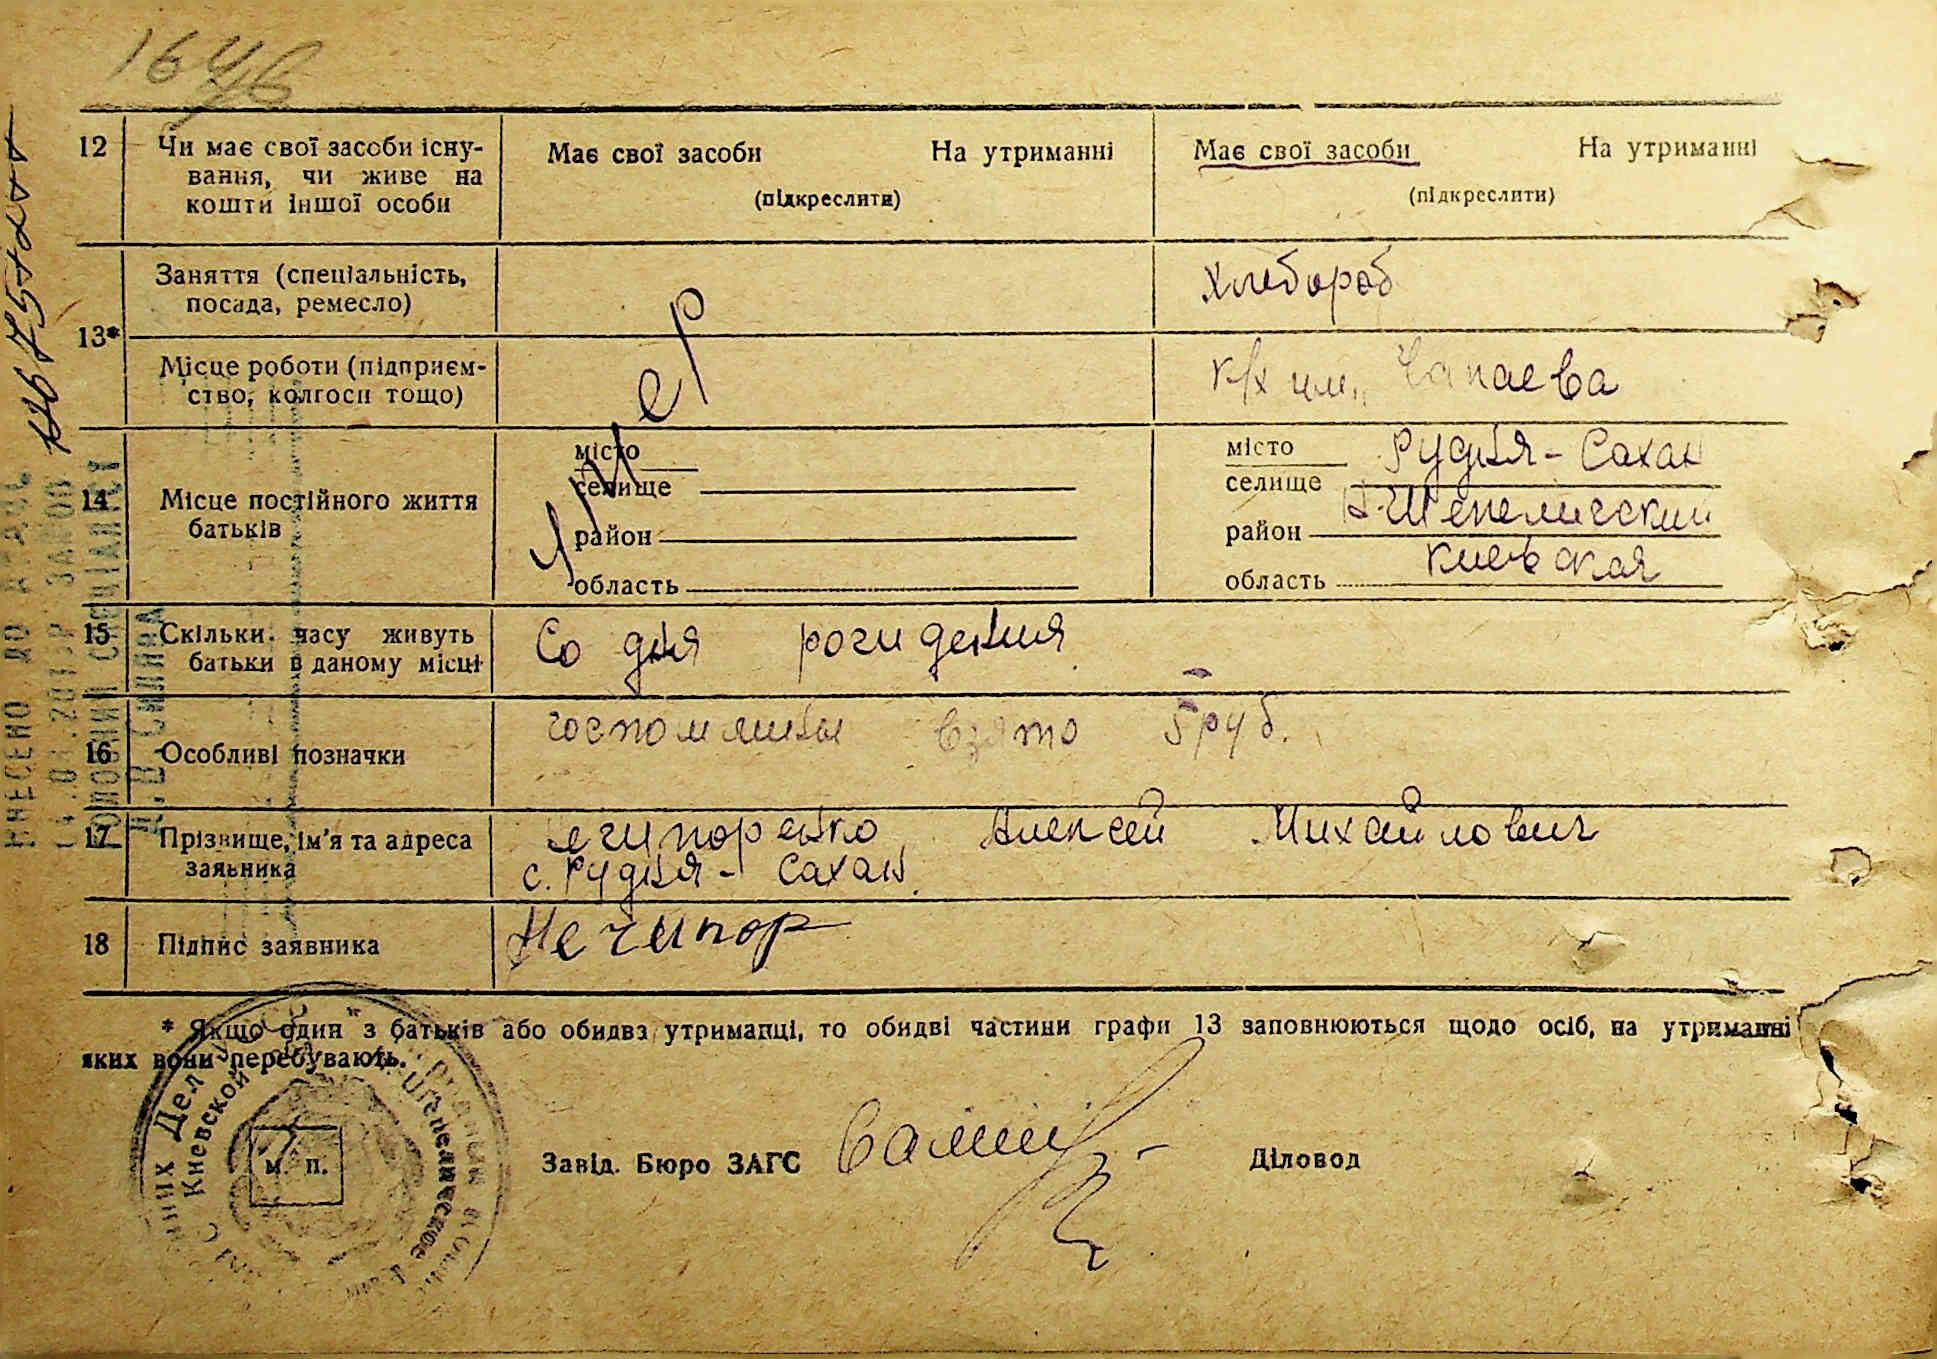 1646
12 Чи має свої засоби існу- Має свої засоби На утриманні Має свої засоби На утриманні
вання, чи живе на
кошти іншої особи (підкреслити) (підкреслити)
Заняття (спеціальність, Хлебороб
посада, ремесло)
13*
Місце роботи (підприєм- К/х им. Чапаева
ство, колгосп тощо)
умер
14 Місце постійного життя
батьків
місто
селище
район
область
місто Рудня-Сахан
селище
район Н.Шепеличский
область Киевская
15 Скільки часу живуть Со дня рождения
батьки в даному місці
16 Особливі позначки госпошлины взято 5 руб.
17 Прізвище, ім'я та адреса Алексей Михайлович
заявника с. Рудня-Сахан.
18 Підпис заявника Нечипор
* Якщо один з батьків або обидва утриманці, то обидві частини графи 13 заповнюються щодо осіб, на утриманні
яких вони перебувають.
Дел
Киевской
М. П.
Завід. Бюро ЗАГС Діловод